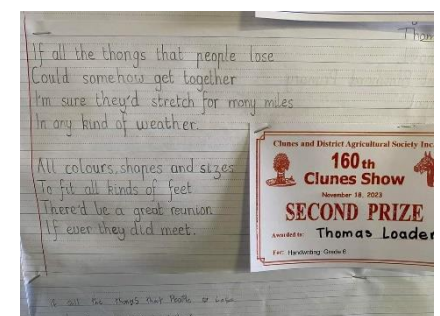 Thom
If all the thongs that people lose
Could somehow get together
I'm sure they'd stretch for many miles
In any kind of weather.
All colours, shapes and sizes
To fit all kinds of feet
There'd be a great reunion
If ever they did meet.
Clunes and District Agricultural Society Inc
160th
Clunes Show
November 18, 2023
SECOND PRIZE
Awarded to: Thomas Loader
For: Handwriting Grade 6
If all the thongs that People